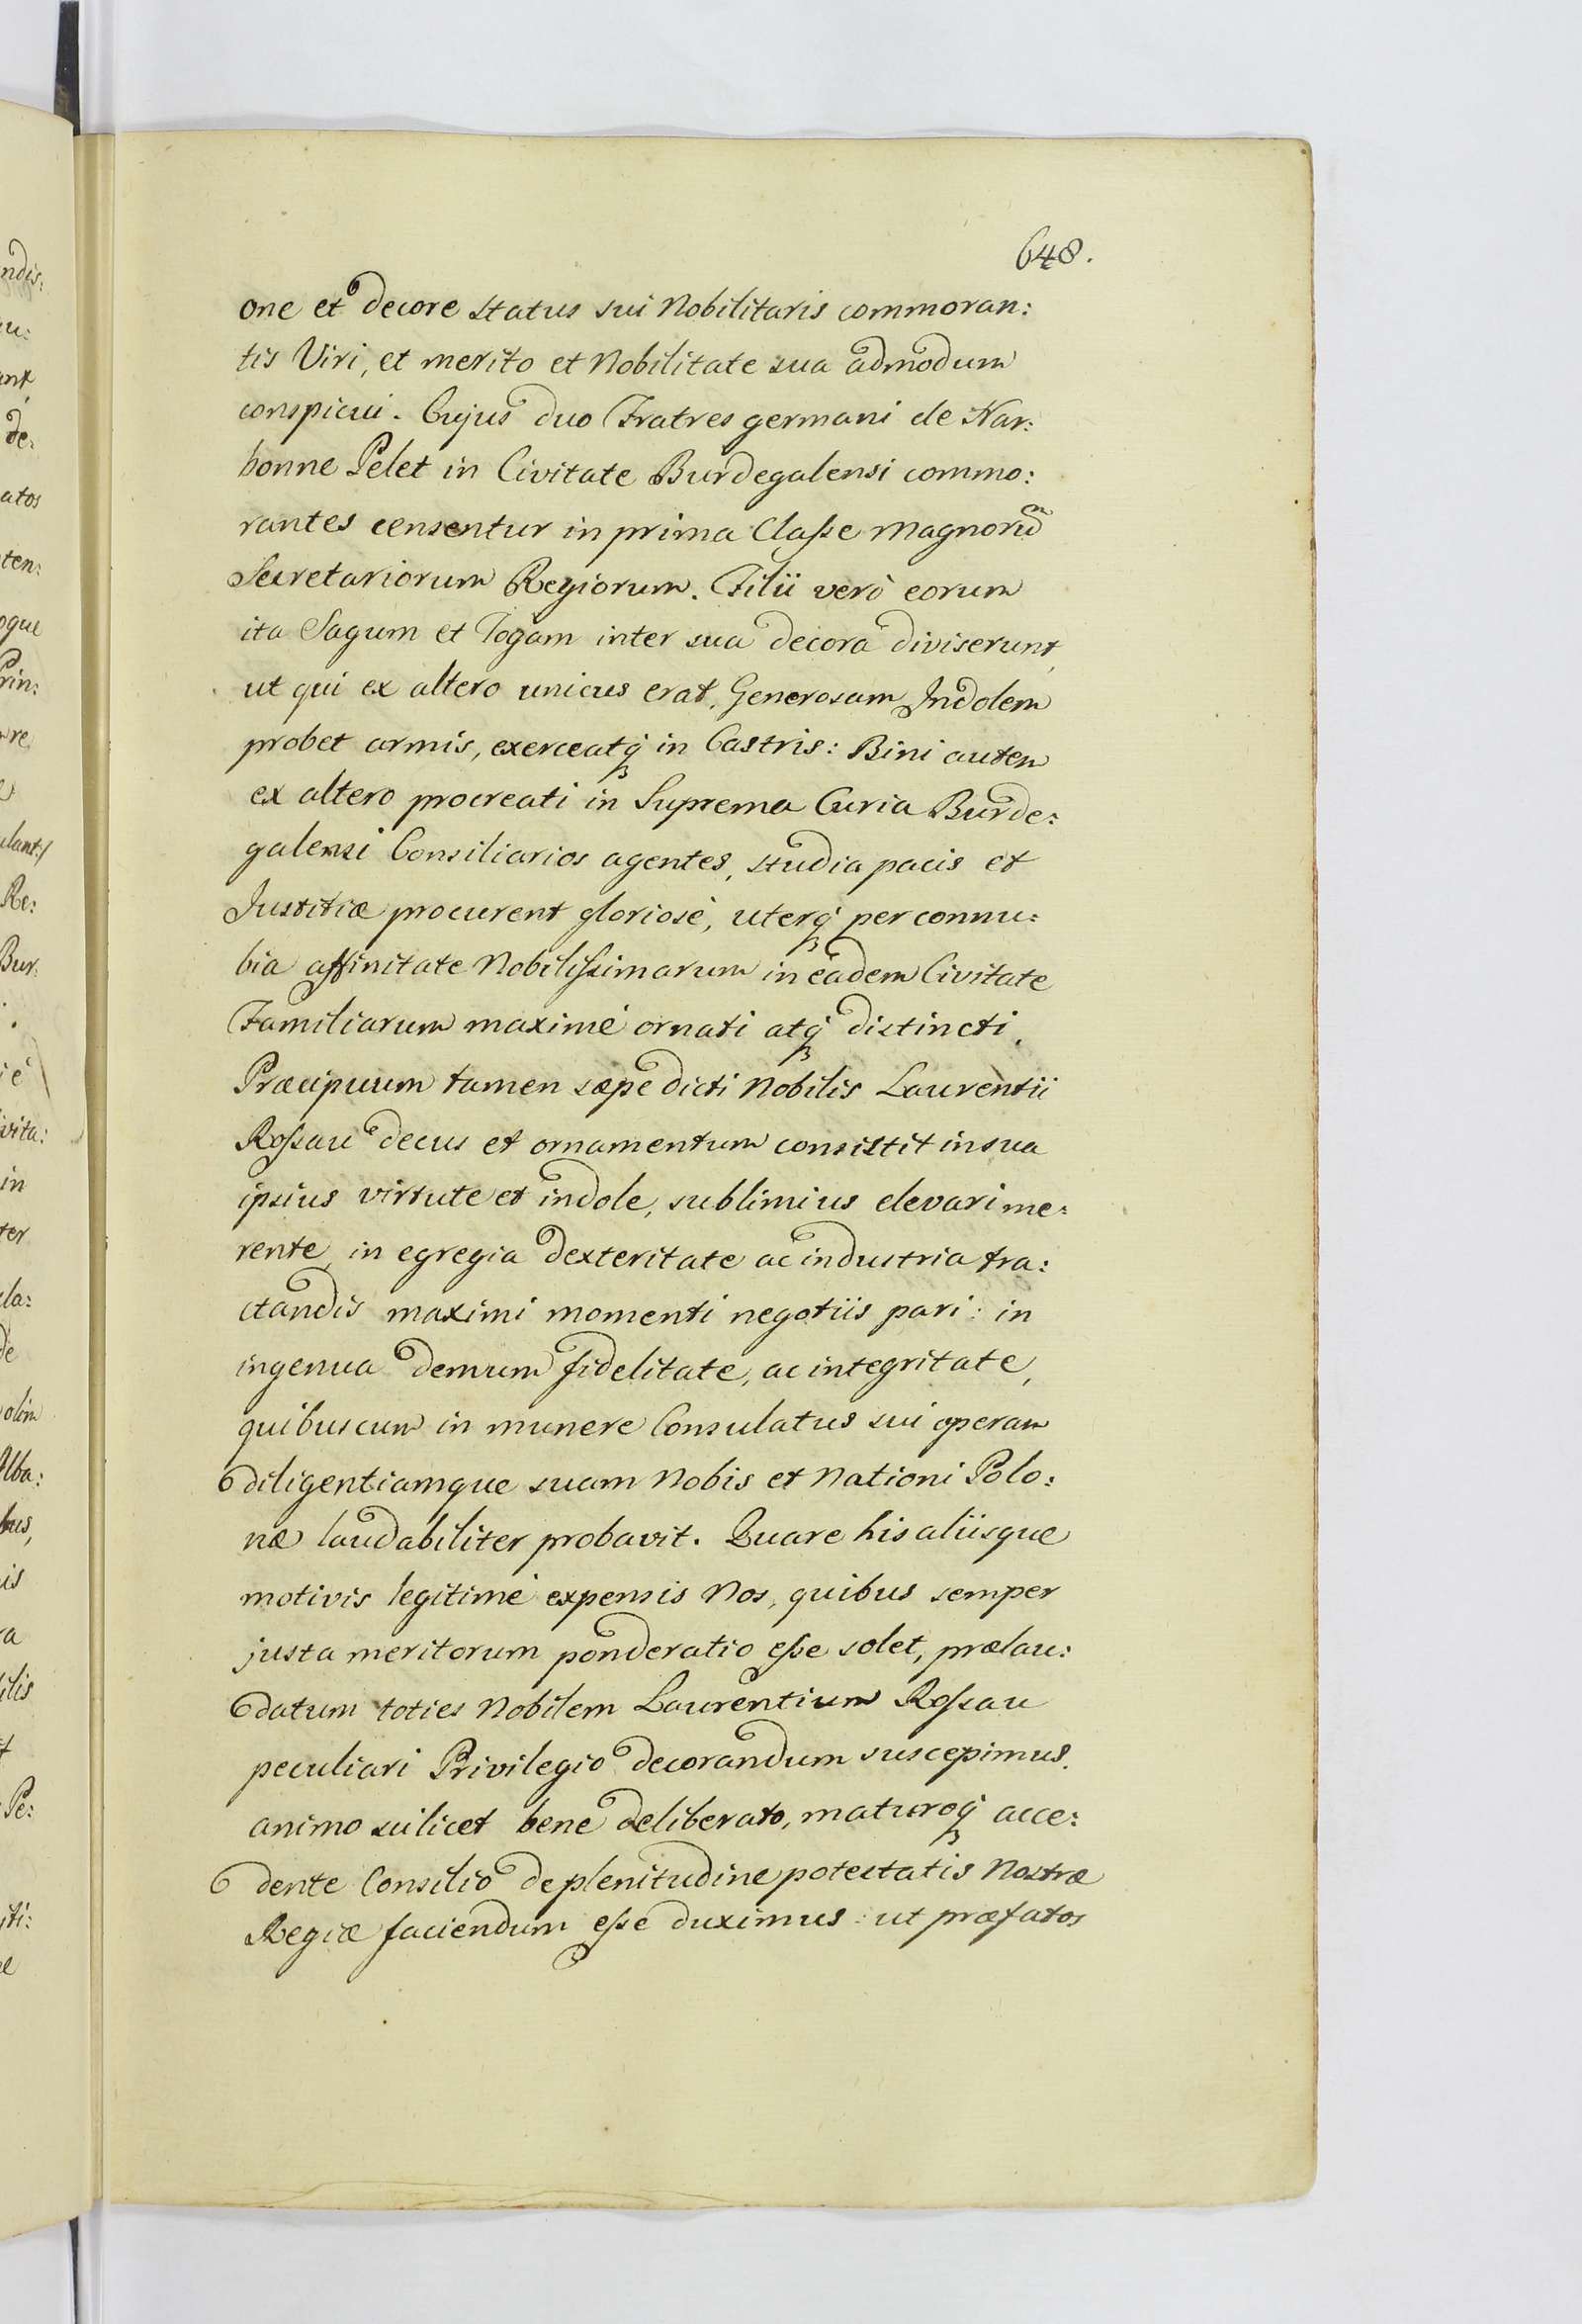 648.
one et decore status sui Nobilitaris commoran:
tis Viri, et merito et Nobilitate sua admodum
conspicui. Cujus duo Fratres germani de Nar:
bonne Pelet in Civitate Burdegalensi commo:
rantes censentur in prima Classe Magnorum̃
Secretariorum Regiorum. Filii verò eorum
ita Sagum et Togam inter sua decora diviserunt,
ut qui ex altero unicus erat, Generosam Indolem
probet armis, exerceatq́ in Castris: Bini autem
ex altero procreati in Suprema Curia Burde:
galensi Consiliarios agentes, studia pacis et
Justitiæ procurent gloriosè, uterq́ per connu:
bia affinitate Nobilissimarum in eadem Civitate
Familiarum maximè ornati atq́ distincti.
Præcipuum tamen sæpe dicti Nobilis Laurentii
Rossau decus et ornamentum consistit in sua
ipsius virtute et indole, sublimius elevari me:
rente, in egregia dexteritate ac industria tra:
ctandis maximi momenti negotiis pari: in
ingenua demum fidelitate, ac integritate,
quibuscum in munere Consulatus sui operam
diligentiamque suam Nobis et Nationi Polo:
næ laudabiliter probavit. Quare his aliisque
motivis legitimè expensis Nos, quibus semper
justa meritorum ponderatio esse solet, prælau:
datum toties Nobilem Laurentium Rossau
peculiari Privilegio decorandum suscepimus.
animo scilicet bene deliberato, maturoq́ acce:
dente Consilio de plenitudine potestatis Nostræ
Regiæ faciendum esse duximus: ut præfatos